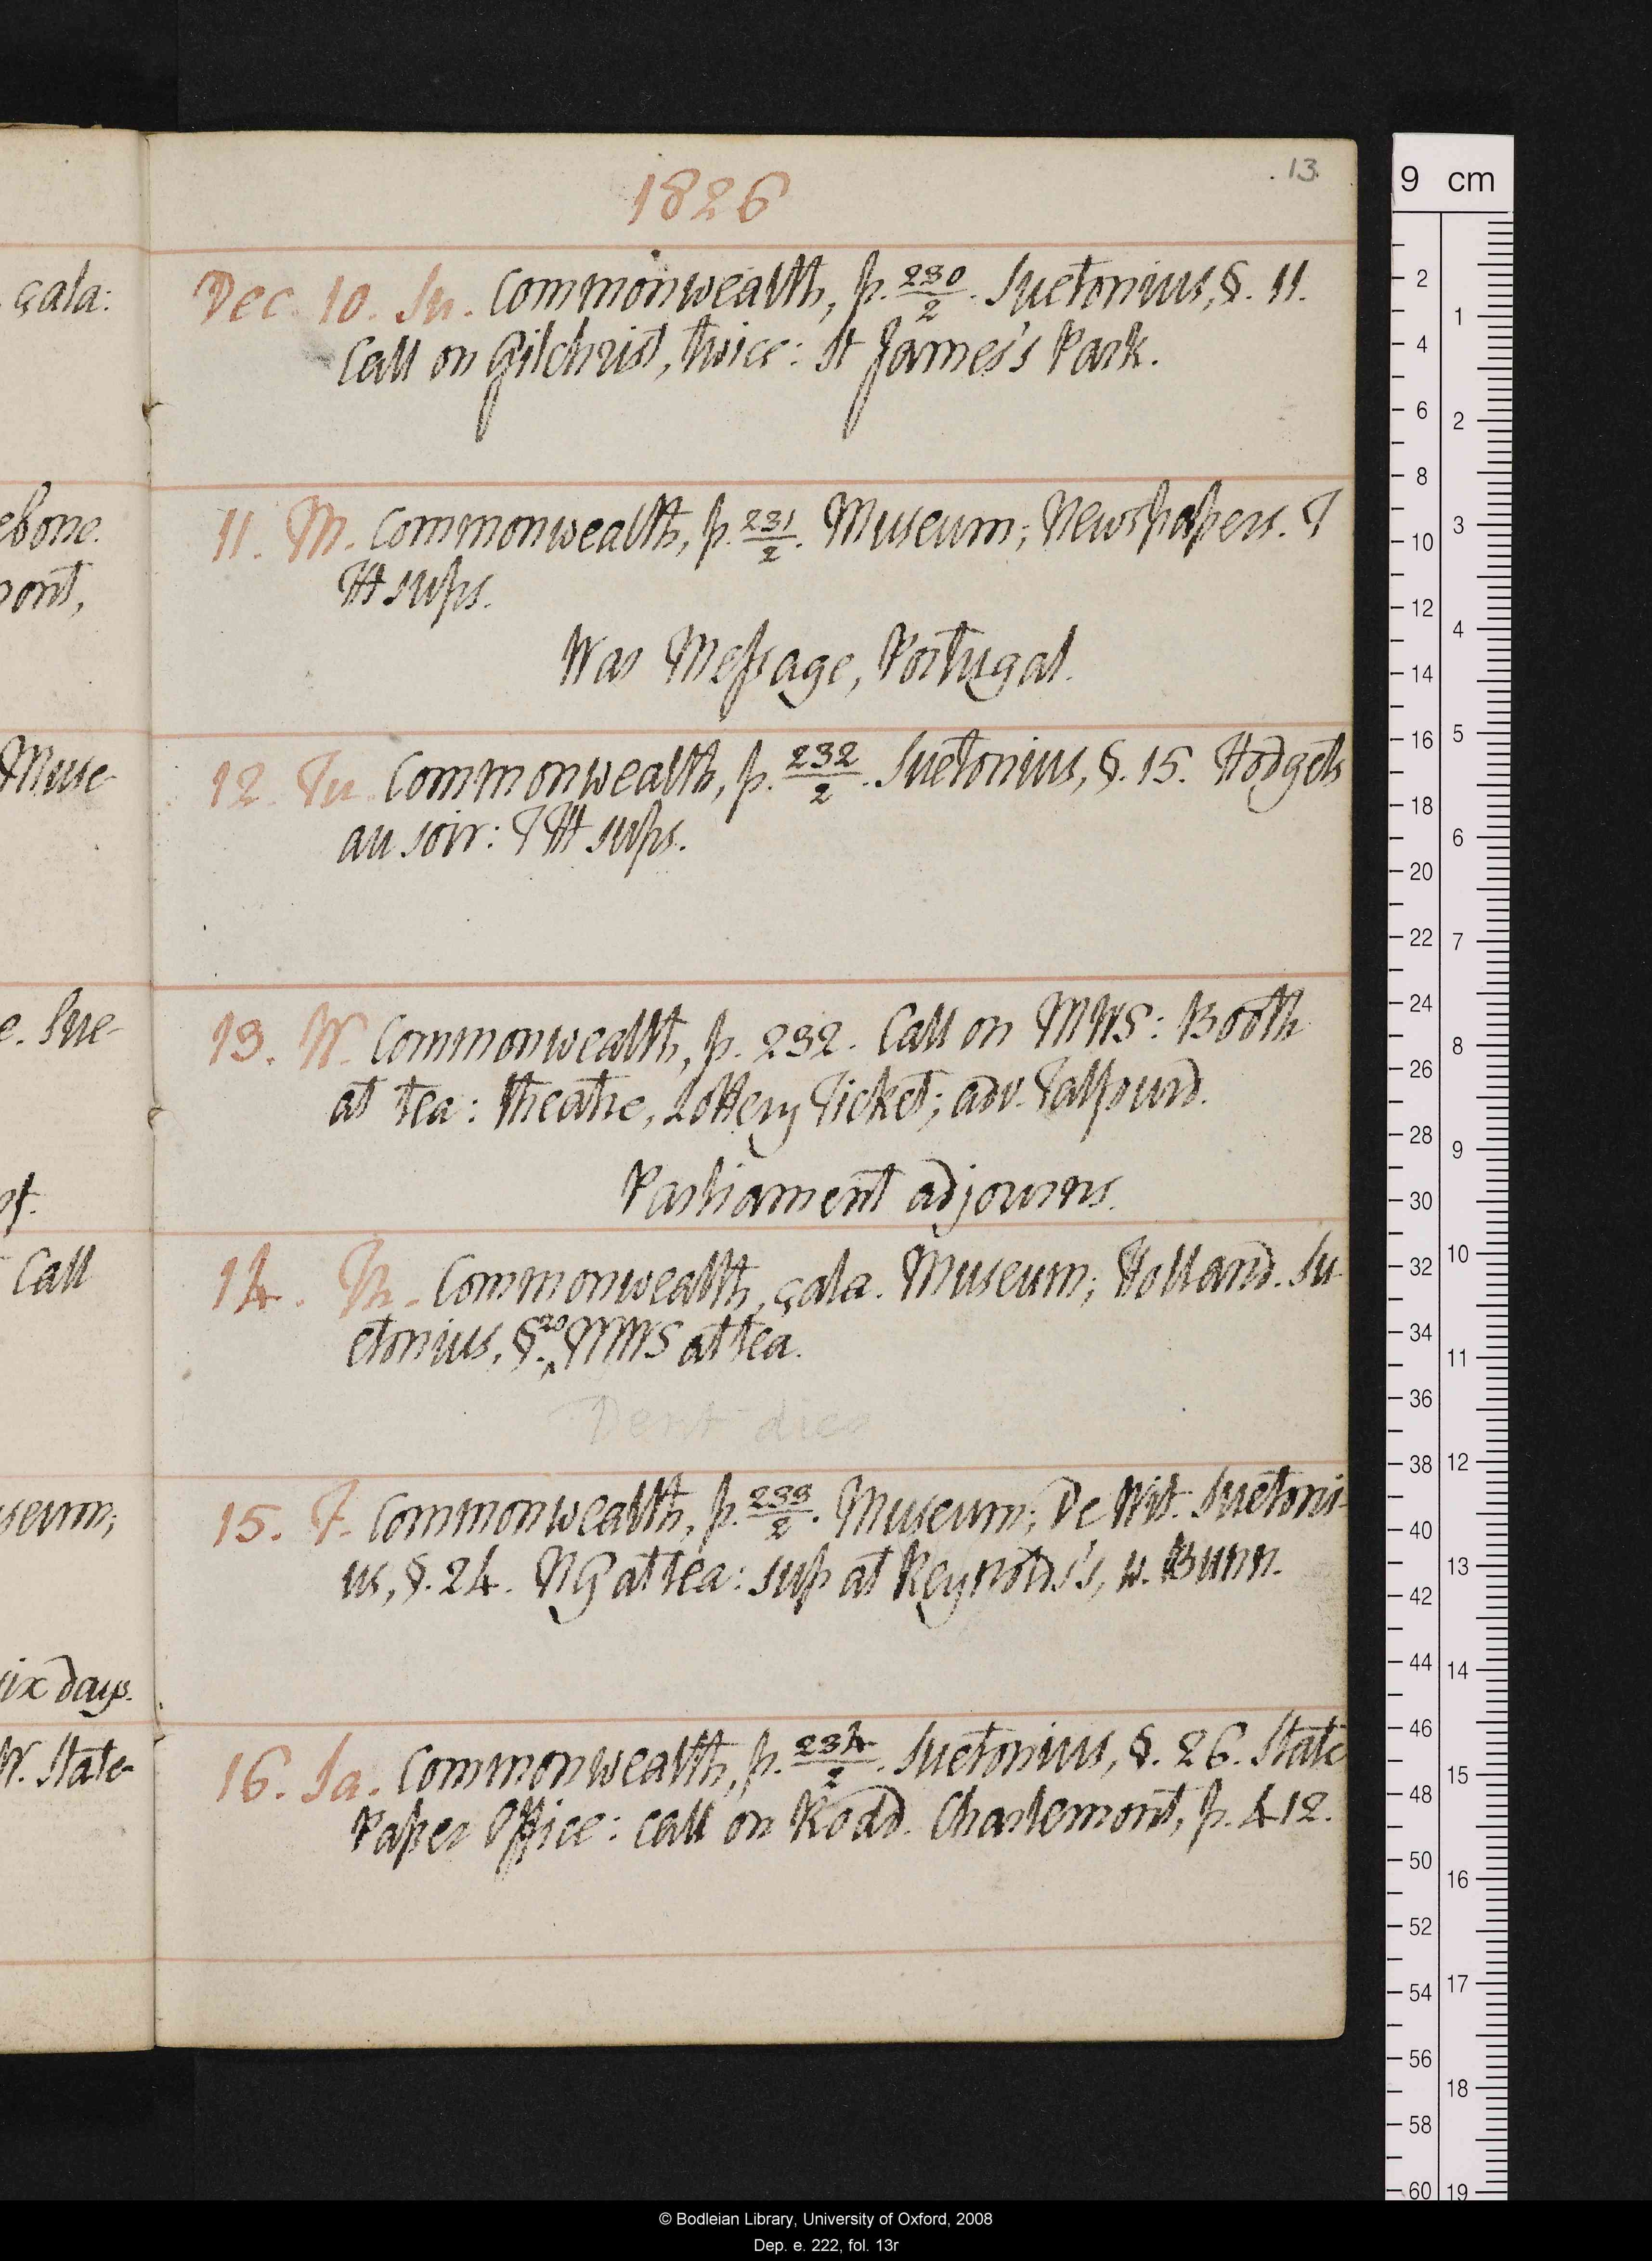 13.
1826
Dec. 10. Su. Commonwealth, p. 230/2. Suetonius, §. 11.
Call on Gilchrist, twice: St James's Park.
11. M. Commonwealth, p. 231/2. Museum; Newspapers. T
TH sups.
War Message, Portugal.
12. Tu. Commonwealth, p. 232/2. Suetonius, §. 15. Hodgets
au soir: THH sups.
13. W. Commonwealth, p. 232. Call on MWS: Booth
at tea: theatre, Lottery Ticket; adv. Talfourd.
Parliament adjourns.
14. Th. Commonwealth, çala. Museum; Holland. Su-
etonius, §. 20 MWS at tea.
Dent dies
15. F. Commonwealth, p. 233/2. Museum; De Wit. Suetoni-
us, §. 24. NG at tea: sup at Reynolds's, w. Bunn.
16. Sa. Commonwealth, p. 234/2. Suetonius, §. 26. State
Paper Office: call on Rodd. Charlemont, p. 412.
çala:
ebone.
mont,
Muse-
e. Sue-
Call
seum;
six days.
W. State-
9 cm
2
4
6
8
10
12
14
16
18
20
22
24
26
28
30
32
34
36
38
40
42
44
46
48
50
52
54
56
58
60
1
2
3
4
5
6
7
8
9
10
11
12
13
14
15
16
17
18
19
© Bodleian Library, University of Oxford, 2008
Dep. e. 222, fol. 13r